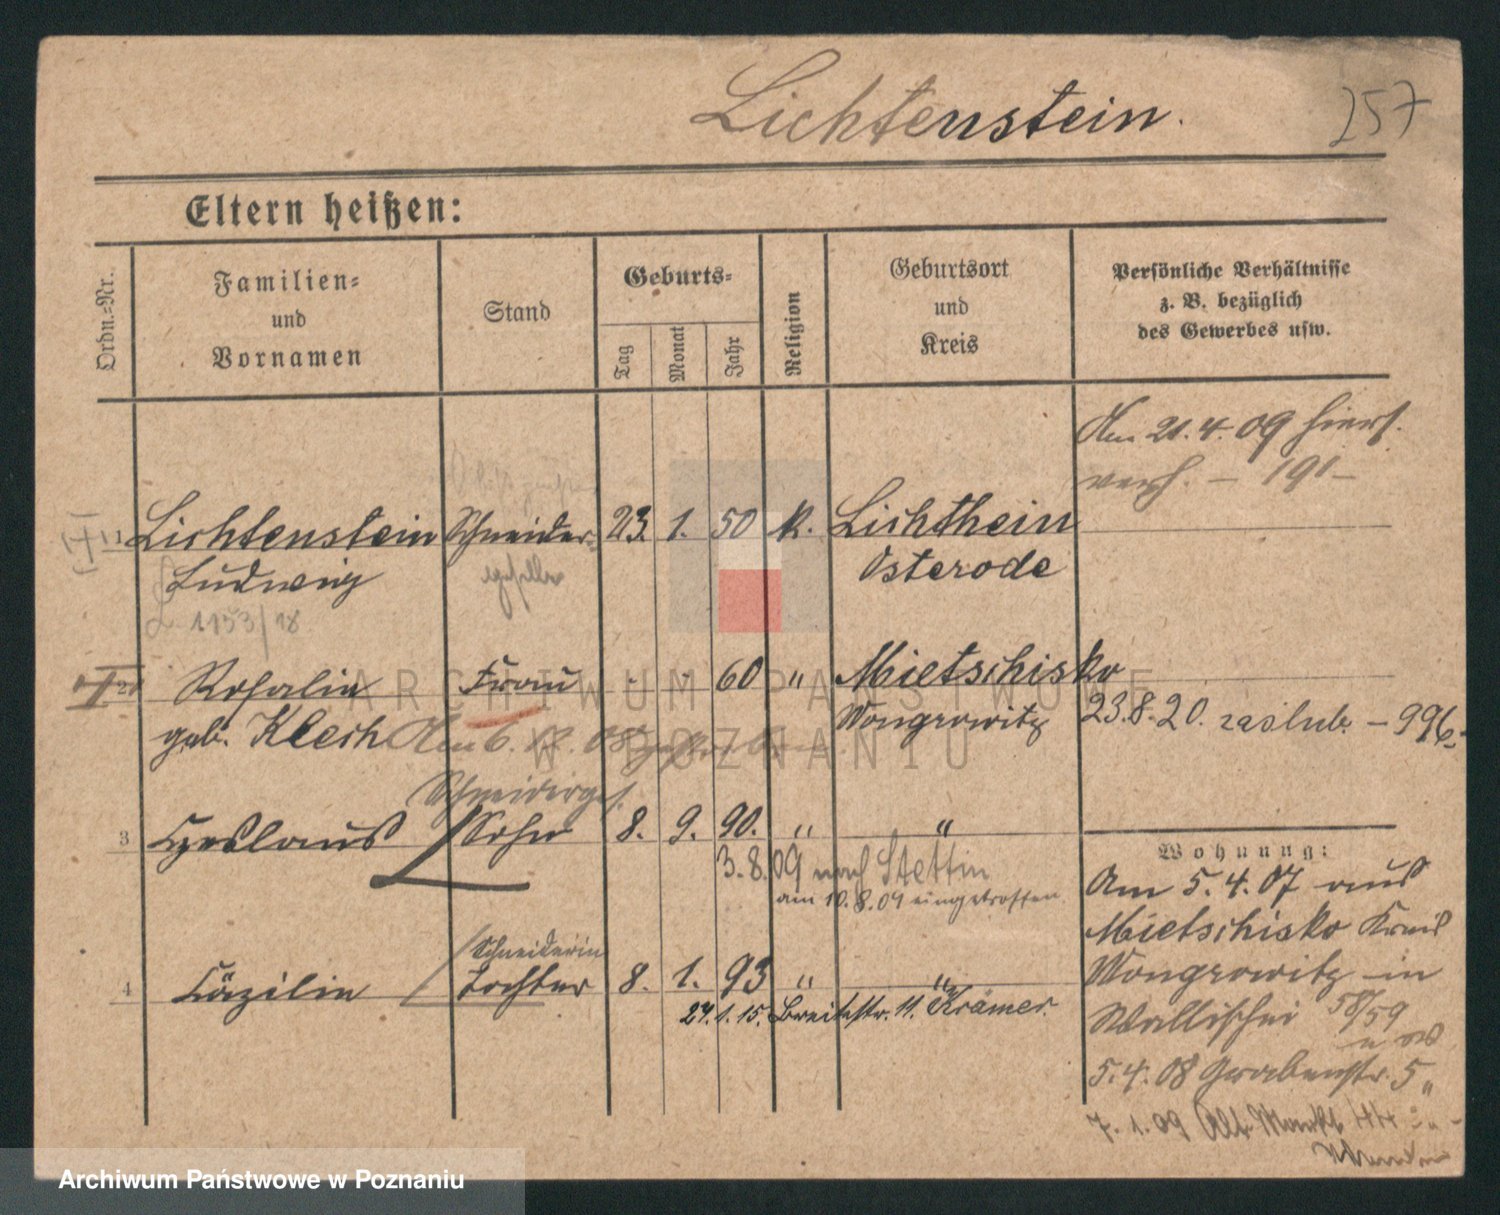 Lichtenstein.
257
Eltern heißen:
Ordn.-Nr.
Familien-
und
Vornamen
Stand
Geburts-
Tag
Monat
Jahr
Religion
Geburtsort
und
Kreis
Persönliche Verhältnisse
z. B. bezüglich
des Gewerbes usw.
Am 21.4.09 hiers.
verh. – 191 –
1 Lichtenstein Schneider- 23. 1. 50 k. Lichthein
Ludwig geselle Osterode
1153/18
2 Rosalie Frau - - 60 " Mietschisko
geb. Klech Wongrowitz
Am 6.
23.8.20. zaslub. – 996.
Schneiderges.
3 Czeslaus Sohn 8. 9. 90. " "
3.8.09 nach Stettin
am 10.8.09 eingetroffen.
Schneiderin
4 Cäzilie Tochter 8. 1. 93 " "
27.1.15. Breitestr. 11. Krämer.
Wohnung:
Am 5.4.07 aus
Mietschisko Kreis
Wongrowitz in
Wallischei 58/59
5.4.08 Grabenstr. 5
7.1.09 Alt. Markt 44
ARCHIWUM PAŃSTWOWE
W POZNANIU
Archiwum Państwowe w Poznaniu